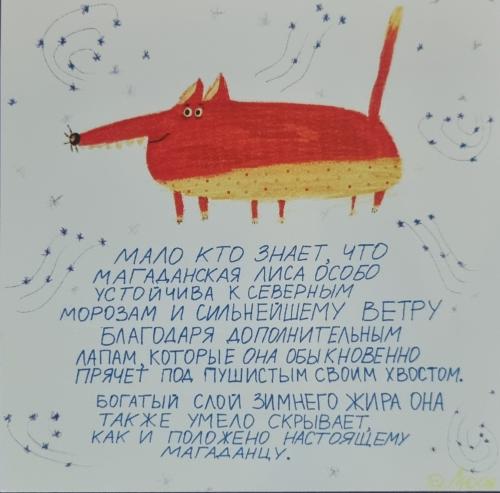 МАЛО КТО ЗНАЕТ, ЧТО
МАГАДАНСКАЯ ЛИСА ОСОБО
УСТОЙЧИВА К СЕВЕРНЫМ
МОРОЗАМ И СИЛЬНЕЙШЕМУ ВЕТРУ
БЛАГОДАРЯ ДОПОЛНИТЕЛЬНЫМ
ЛАПАМ, КОТОРЫЕ ОНА ОБЫКНОВЕННО
ПРЯЧЕТ ПОД ПУШИСТЫМ СВОИМ ХВОСТОМ.
БОГАТЫЙ СЛОЙ ЗИМНЕГО ЖИРА ОНА
ТАКЖЕ УМЕЛО СКРЫВАЕТ,
КАК И ПОЛОЖЕНО НАСТОЯЩЕМУ
МАГАДАНЦУ.